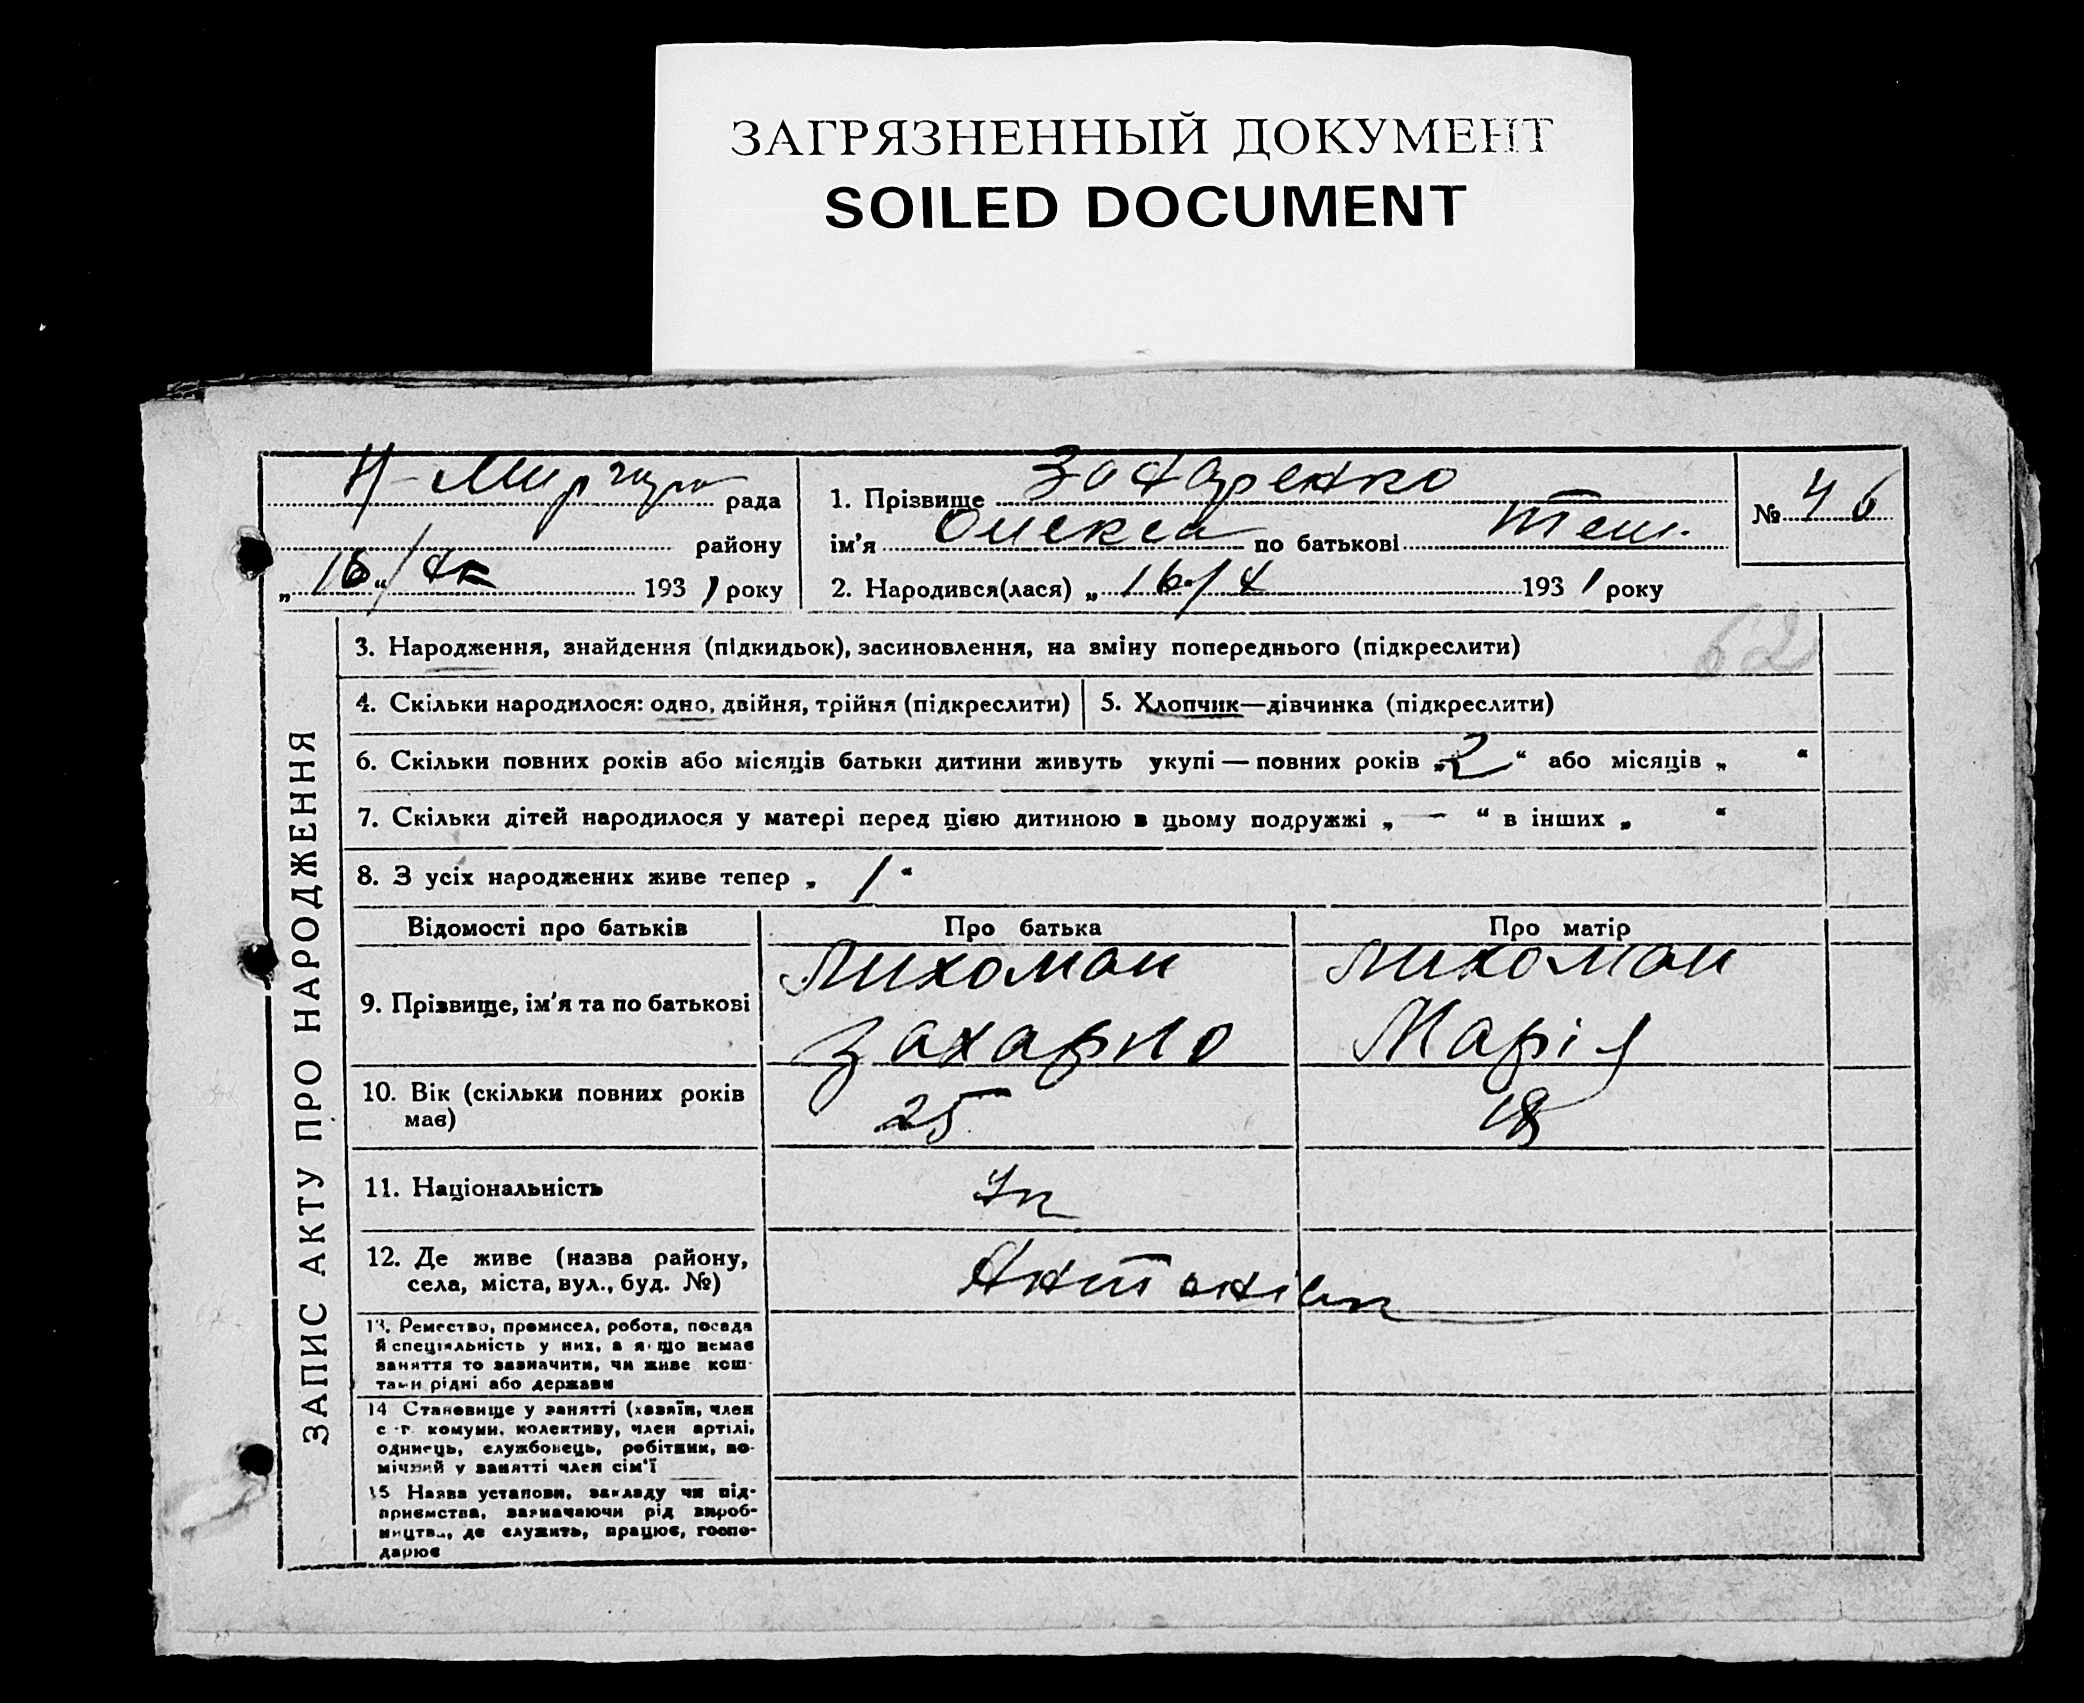 ЗАГРЯЗНЕННЫЙ ДОКУМЕНТ
SOILED DOCUMENT
рада
району
„16“/ 193 1 року
1. Прізвище
ім'я Олекса по батькові
2. Народився(лася) „16“/ 193 1 року
№ 46
62
ЗАПИС АКТУ ПРО НАРОДЖЕННЯ
3. Народження, знайдення (підкидьок), засиновлення, на зміну попереднього (підкреслити)
4. Скільки народилося: одно, двійня, трійня (підкреслити)
5. Хлопчик—дівчинка (підкреслити)
6. Скільки повних років або місяців батьки дитини живуть укупі — повних років „2“ або місяців „ “
7. Скільки дітей народилося у матері перед цією дитиною в цьому подружжі „ — “ в інших „ “
8. З усіх народжених живе тепер „ 1 “
Відомості про батьків
Про батька
Про матір
9. Прізвище, ім'я та по батькові
Лихоман
Лихоман
Марія
10. Вік (скільки повних років
має)
25
18
11. Національність
Ук
12. Де живе (назва району,
села, міста, вул., буд. №)
13. Ремество, промисел, робота, посада
й спеціяльність у них, а якщо немає
заняття то зазначити, чи живе кош-
тами рідні або держави
14 Становище у занятті (хазяїн, член
с.-г. комуни, колективу, член артілі,
одинець, службовець, робітник, по-
мічний у занятті член сім'ї
15 Назва установи, закладу чи під-
приємства, зазначаючи рід вироб-
ництва, де служить, працює, госпо-
дарює